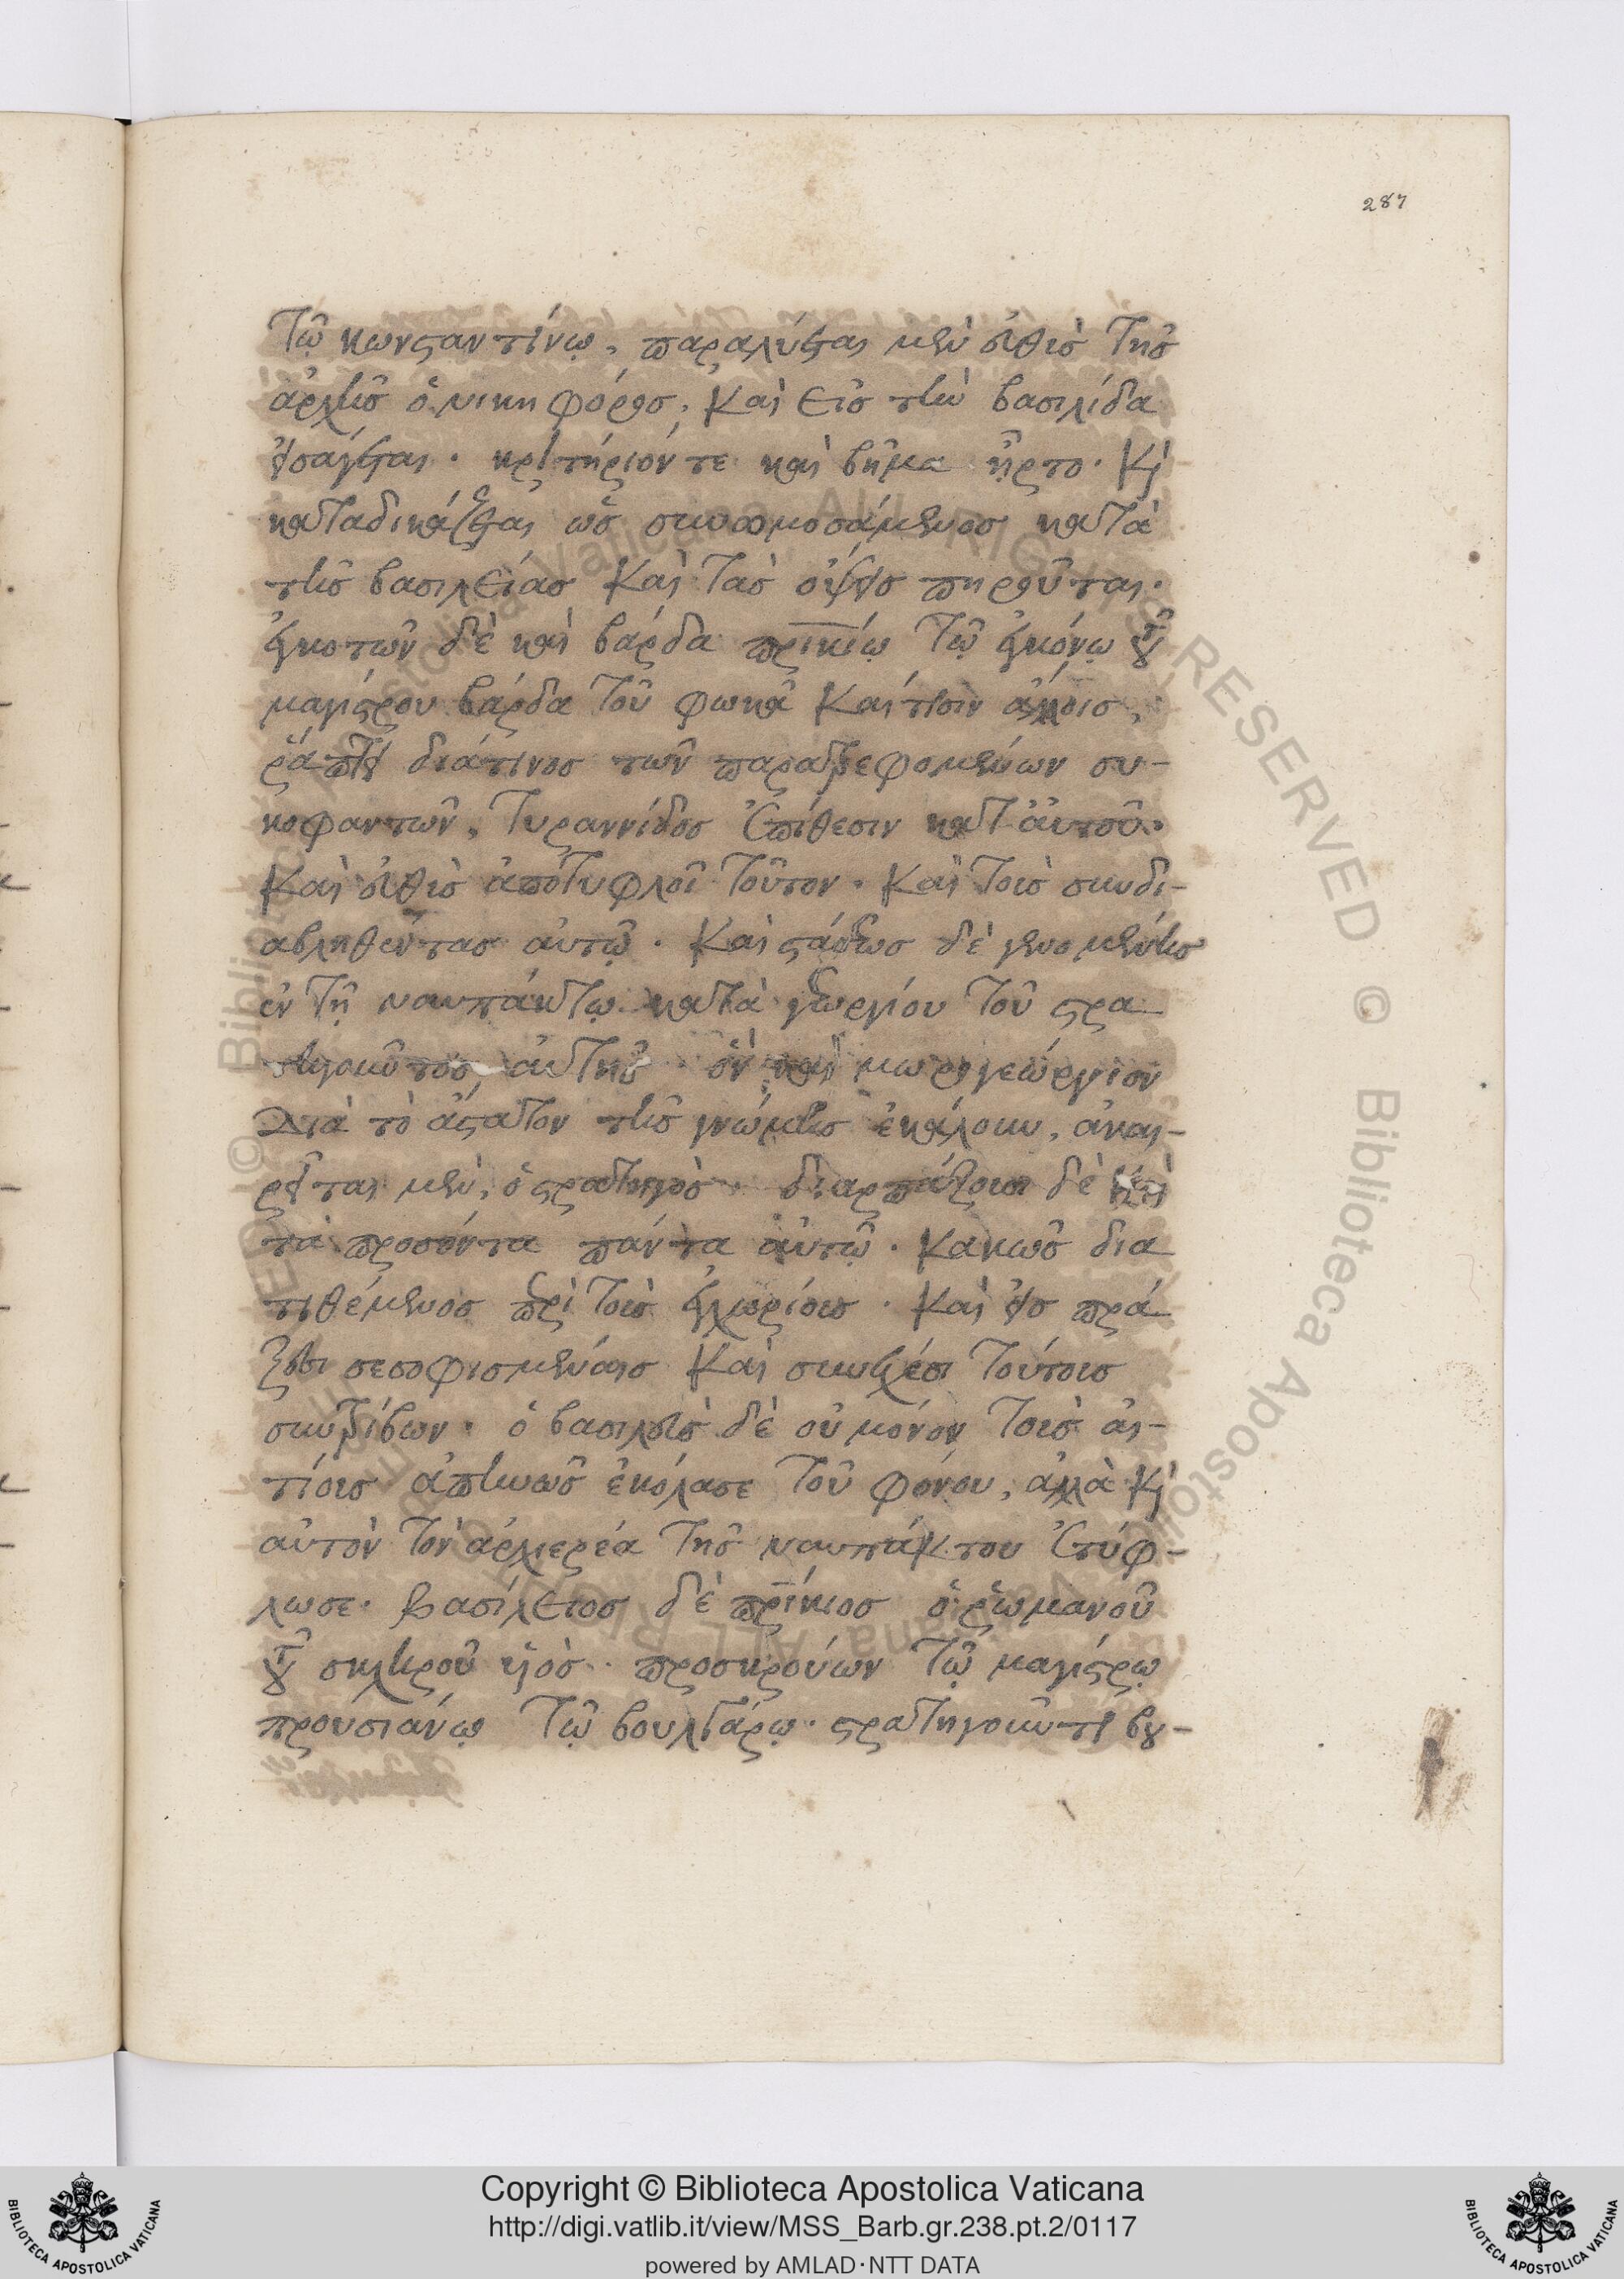 287
Τῷ κωνσταντίνω, παραλύεται μὲν εὐθὺς τῆς
ἀρχῆς ὁ νικηφόρος, καὶ εἰς τὴν βασιλίδα
εἰσάγεται· κριτήριόν τε καὶ βῆμα ἦρτο· καὶ
καταδικάζεται ὡς συνομοσάμενος κατὰ
τῆς βασιλείας καὶ τὰς ὄψεις πηροῦται·
ἐγκοτῶν δὲ καὶ βάρδα πρικίῳ τῷ ἐγκόνῳ τοῦ
μαγίστρου βάρδα τοῦ φωκᾶ καί τισιν ἄλλοις,
ῥάπτει διά τινος τῶν παρατρεφομένων συ-
κοφαντῶν, τυραννίδος ἐπίθεσιν κατ αὐτοῦ·
καὶ εὐθὺς ἀποτυφλοῖ τοῦτον· καὶ τοὺς συνδι-
αβληθέντας αὐτῷ· καὶ στάσεως δὲ γενομένης
ἐν τῇ ναυπάκτῳ κατὰ γεωργίου τοῦ στρα
τηγοῦντος αὐτῆς· ὃν καὶ μωρογεώργιον
Διὰ τὸ ἄστατον τῆς γνώμης ἐκάλουν, ἀναι-
ρεῖται μὲν, ὁ στρατηγὸς· διαρπάζουσι δὲ καὶ
τὰ προσόντα πάντα αὐτῷ· κακῶς δια
τιθέμενος περὶ τοὺς ἐγχωρίους· καὶ εἰσ πρά
ξεσι σεσοφισμέναις καὶ συνεχέσι τούτους
συντρίβων· ὁ βασιλεὺς δὲ οὐ μόνον τοὺς αἰ-
τίους ἀπηνῶς ἐκόλασε τοῦ φόνου, ἀλλὰ καὶ
αὐτὸν τὸν ἀρχιερέα τῆς ναυπάκτου ἐτύφ-
λωσε· βασίλειος δὲ πρίκιος ὁ ῥωμανοῦ
τοῦ σκληροῦ υἱὸς· προσκρούων τῷ μαγίστρῳ
προυσιάνῳ τῷ βουλγάρῳ· στρατηγοῦντι βου-
Copyright © Biblioteca Apostolica Vaticana
http://digi.vatlib.it/view/MSS_Barb.gr.238.pt.2/0117
powered by AMLAD·NTT DATA
BIBLIOTECA APOSTOLICA VATICANA
BIBLIOTECA APOSTOLICA VATICANA